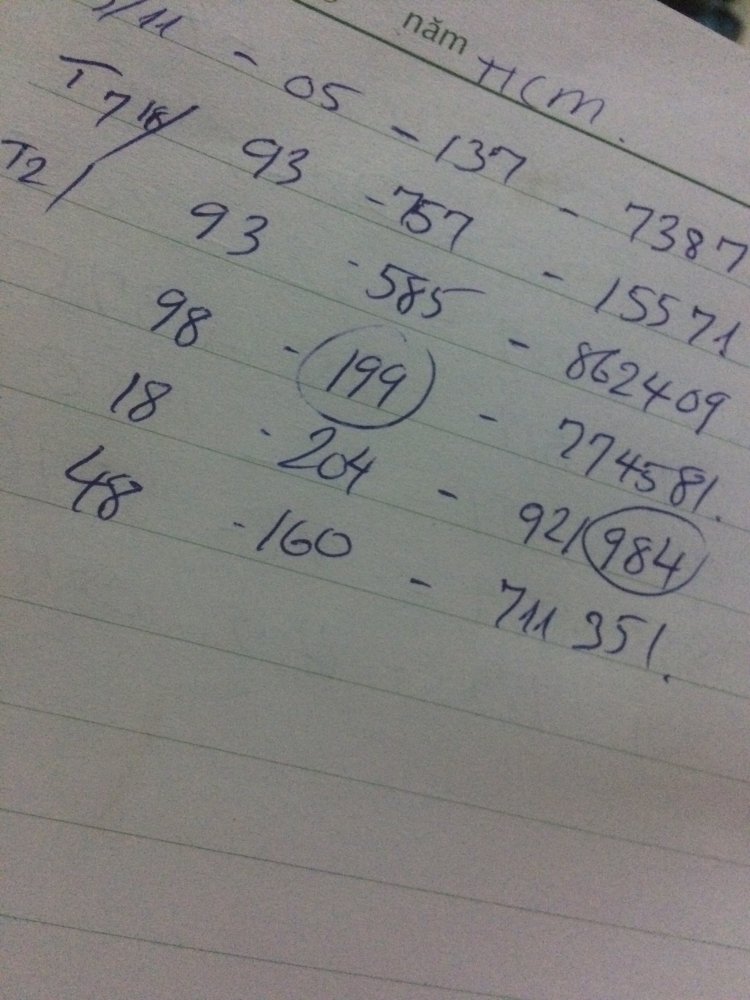 năm HCM.
/11 - 05 - 137 - 7387
T7 / 93 - 757 - 15571
T2/ 93 - 585 - 862409
98 - 199 - 774581.
18 - 204 - 921984
48 - 160 - 711351.